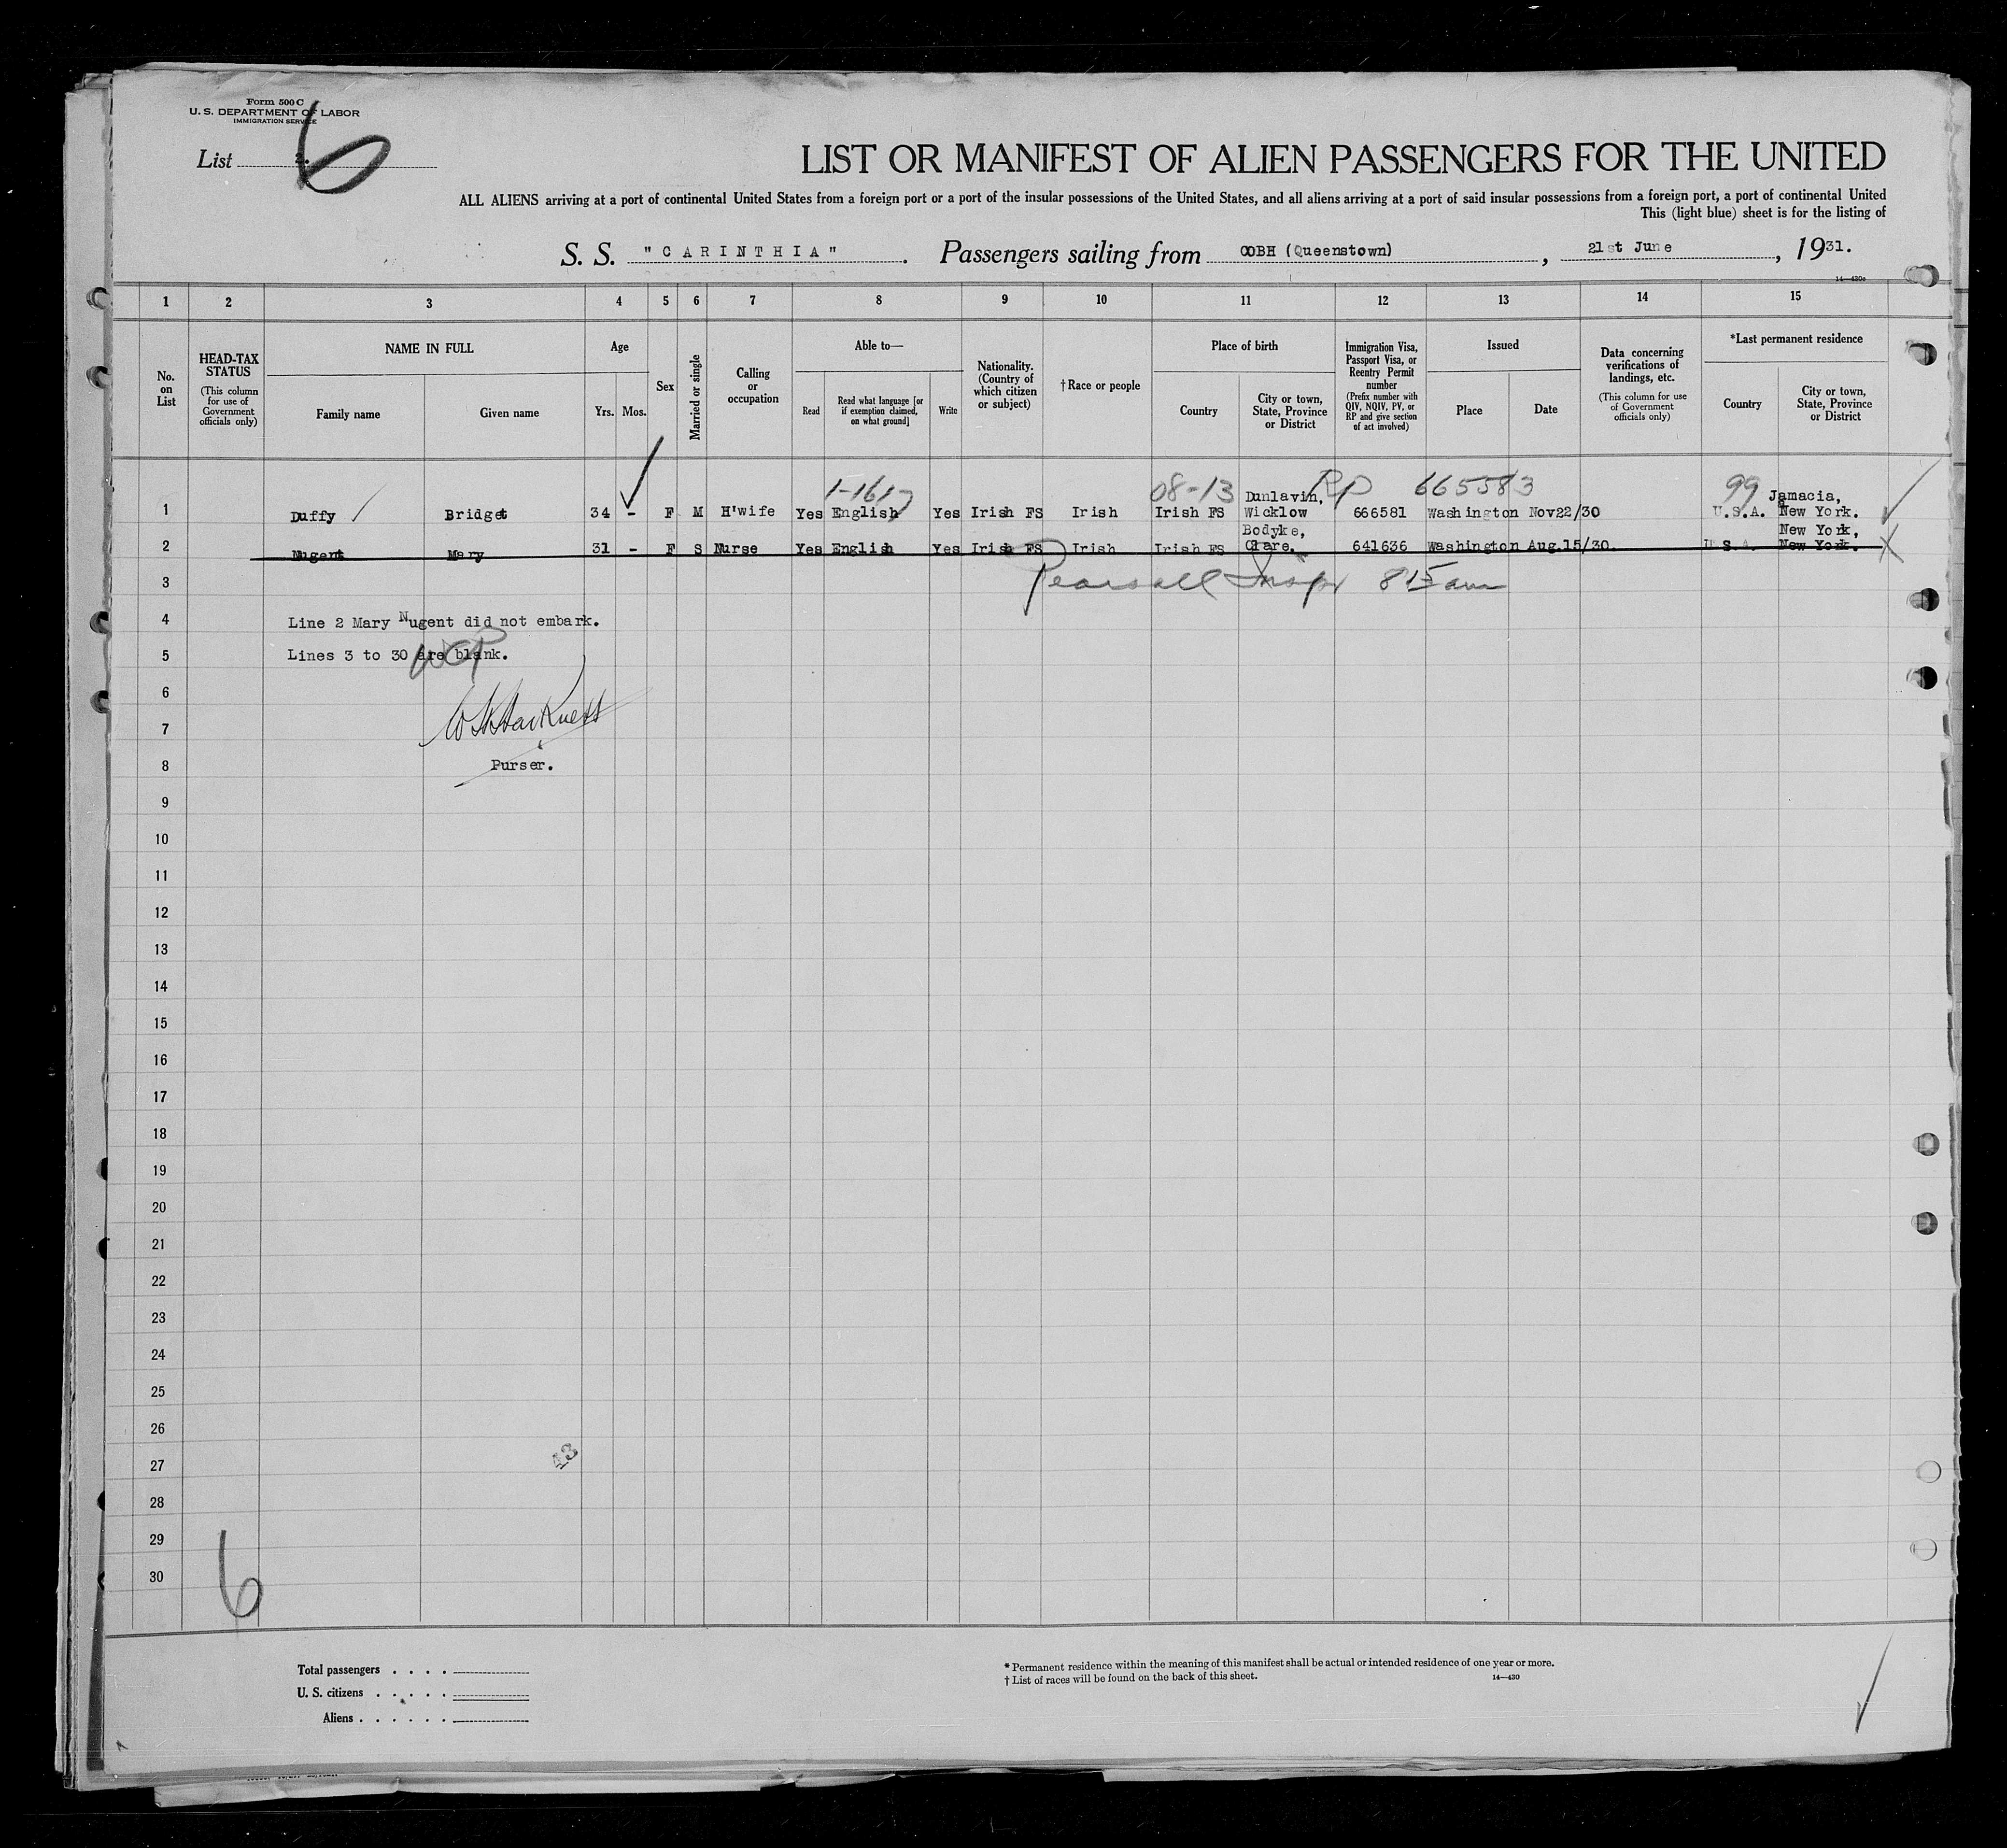 Form 500 C
U. S. DEPARTMENT OF LABOR
IMMIGRATION SERVICE
List 2. 6
LIST OR MANIFEST OF ALIEN PASSENGERS FOR THE UNITED
ALL ALIENS arriving at a port of continental United States from a foreign port or a port of the insular possessions of the United States, and all aliens arriving at a port of said insular possessions from a foreign port, a port of continental United
This (light blue) sheet is for the listing of
S. S. "CARINTHIA". Passengers sailing from COBH (Queenstown), 21st June, 1931.
14—430c
1 2 3 4 5 6 7 8 9 10 11 12 13 14 15
No. on List
HEAD-TAX STATUS
(This column for use of Government officials only)
NAME IN FULL
Family name Given name
Age
Yrs. Mos.
Sex
Married or single
Calling or occupation
Able to—
Read
Read what language [or if exemption claimed, on what ground]
Write
Nationality. (Country of which citizen or subject)
†Race or people
Place of birth
Country
City or town, State, Province or District
Immigration Visa, Passport Visa, or Reentry Permit number
(Prefix number with QIV, NQIV, PV, or RP and give section of act involved)
Issued
Place Date
Data concerning verifications of landings, etc.
(This column for use of Government officials only)
*Last permanent residence
Country
City or town, State, Province or District
1-1617 08-13 Dunlavin, RP 665583 99 Jamacia,
1 Duffy Bridget 34 - F M H'wife Yes English Yes Irish FS Irish Irish FS Wicklow 666581 Washington Nov22/30 U.S.A. New York.
Bodyke, New York,
2 Nugent Mary 31 - F S Nurse Yes English Yes Irish FS Irish Irish FS Clare. 641636 Washington Aug.15/30. U.S.A. New York.
3 Pearsall Insp 815 am
4 Line 2 Mary Nugent did not embark.
5 Lines 3 to 30 are blank.
WCP
6
7 W Harkness
8 Purser.
9
10
11
12
13
14
15
16
17
18
19
20
21
22
23
24
25
26
27
13
28
29
30
6
Total passengers . . . .
U. S. citizens . . . . .
Aliens . . . . . .
* Permanent residence within the meaning of this manifest shall be actual or intended residence of one year or more.
† List of races will be found on the back of this sheet. 14—430